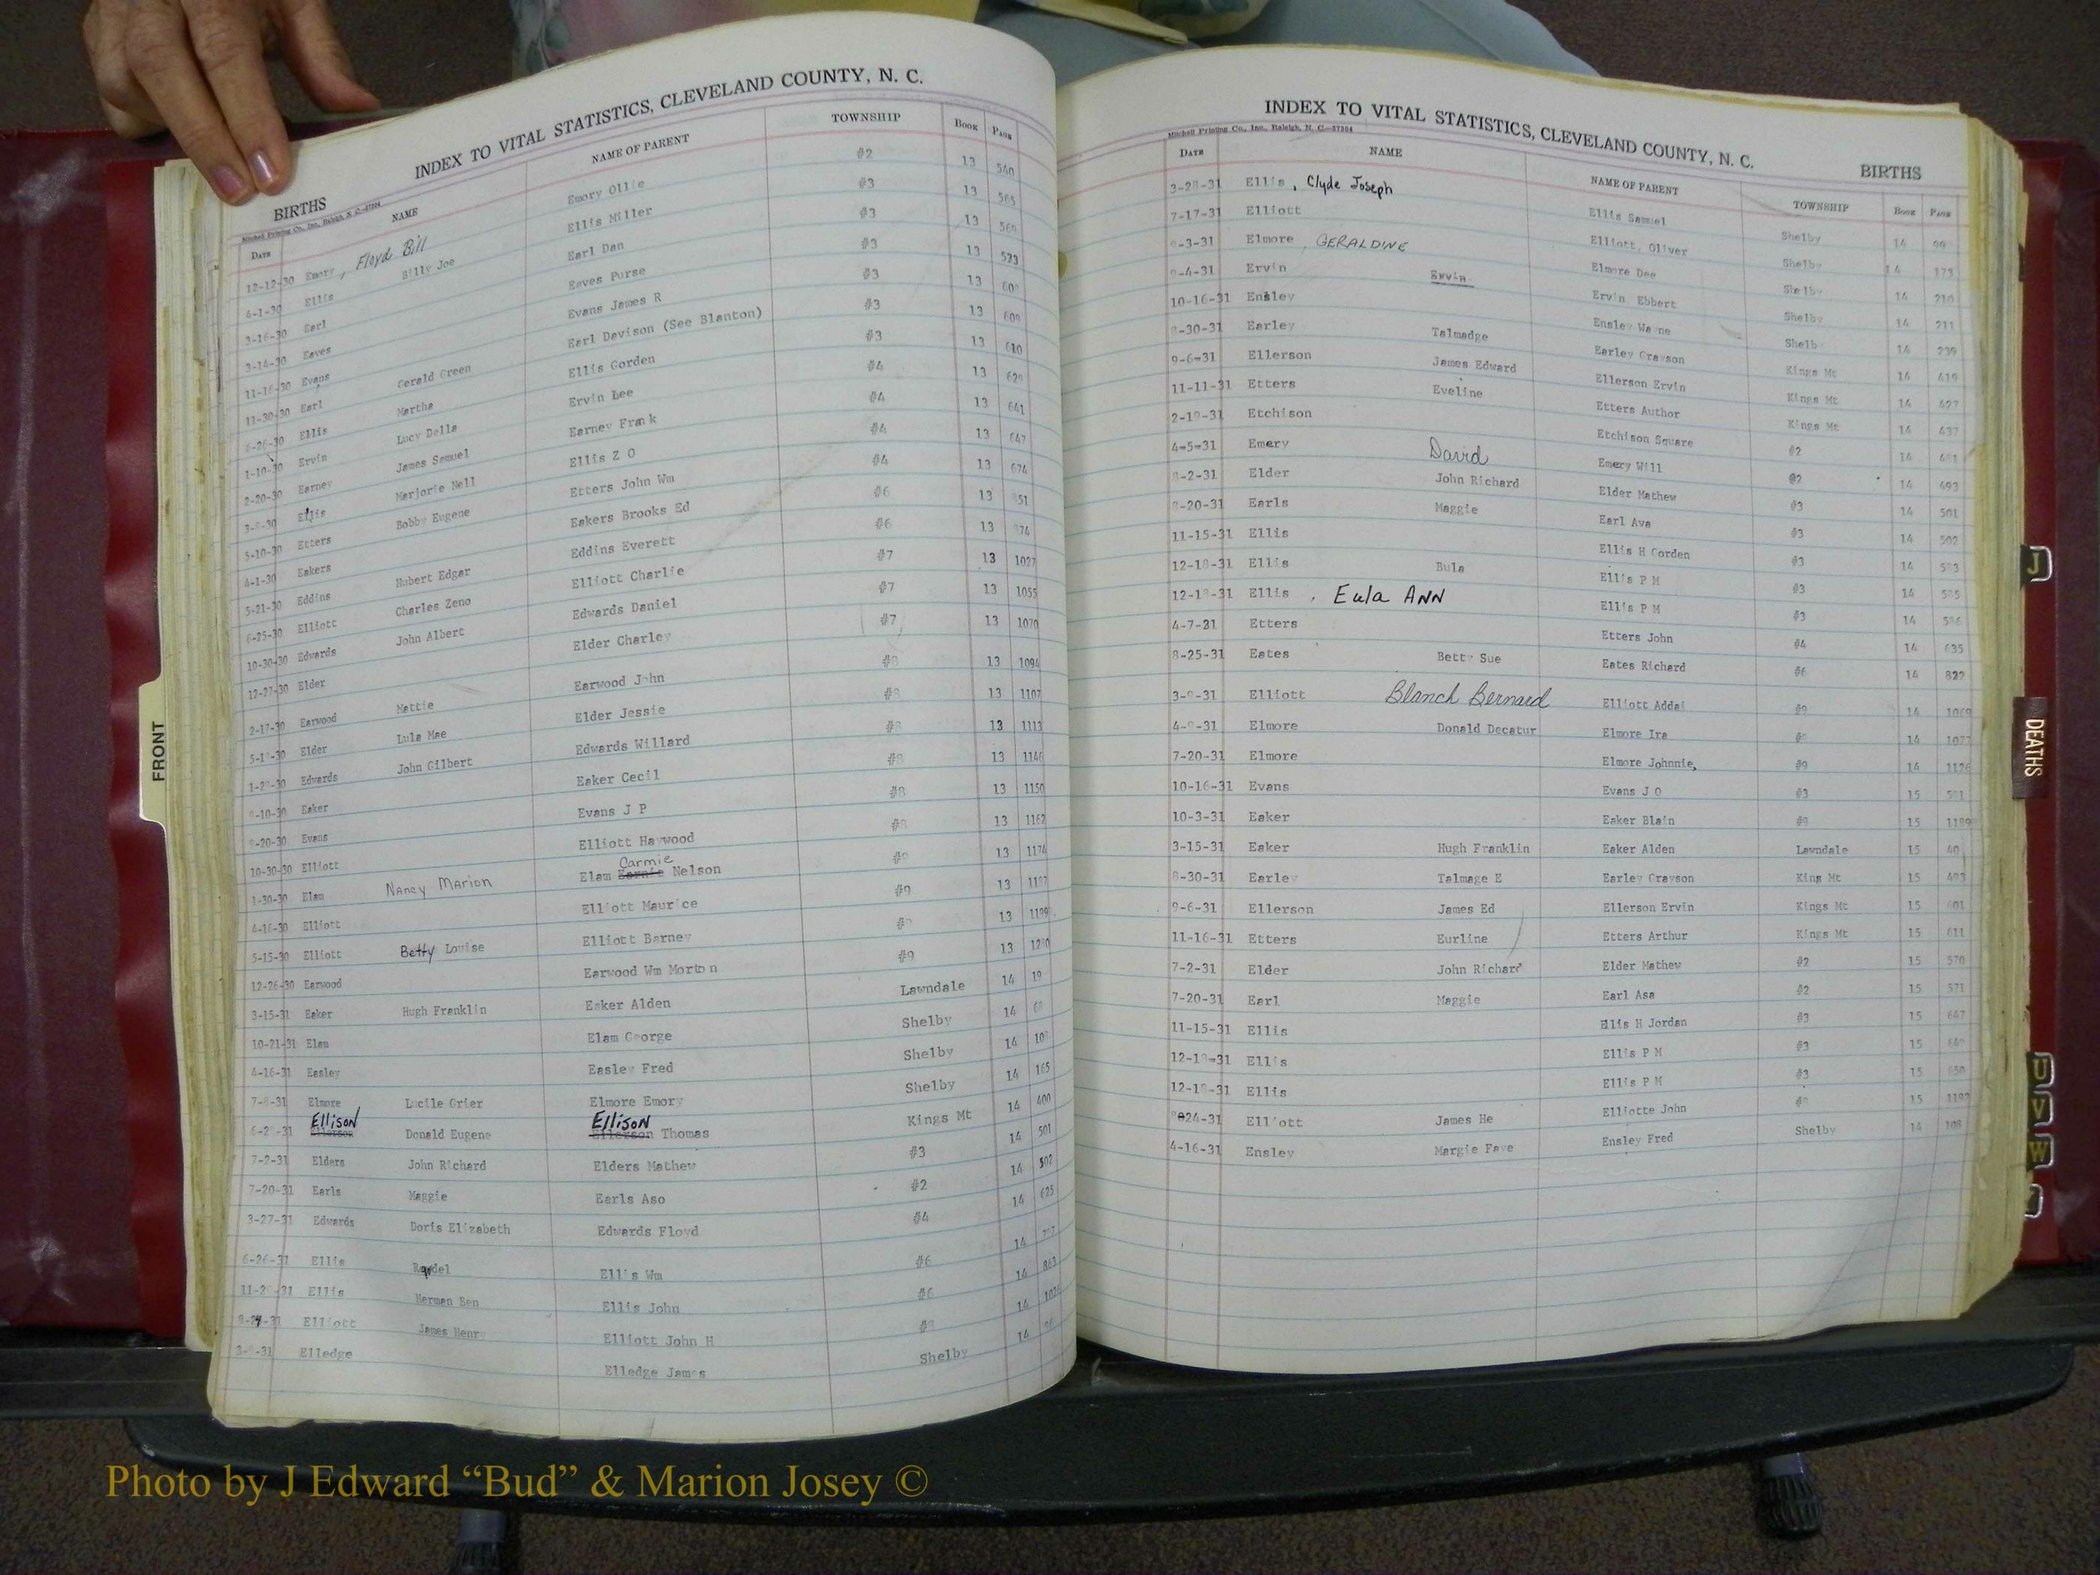 INDEX TO VITAL STATISTICS, CLEVELAND COUNTY, N. C.
BIRTHS
Mitchell Printing Co., Inc., Raleigh, N. C.—37204
DATE NAME NAME OF PARENT TOWNSHIP BOOK PAGE
12-12-30 Emory, Floyd Bill Emory Ollie #2 13 540
4-1-30 Ellis Billy Joe Ellis Miller #3 13 565
3-16-30 Earl Earl Dan #3 13 569
3-14-30 Eaves Eaves Purse #3 13 573
11-18-30 Evans Evans James R #3 13
11-30-30 Earl Gerald Green Earl Davison (See Blanton) #3 13 609
6-26-30 Ellis Martha Ellis Gorden #3 13 610
1-10-30 Ervin Lucy Della Ervin Lee #4 13
2-20-30 Earney James Samuel Earney Frank #4 13 641
Ellis Marjorie Nell Ellis Z O #4 13 647
5-10-30 Etters Bobby Eugene Etters John Wm #4 13 674
4-1-30 Eakers Eakers Brooks Ed #6 13
5-21-30 Eddins Hubert Edgar Eddins Everett #6 13
6-25-30 Elliott Charles Zeno Elliott Charlie #7 13 1027
10-30-30 Edwards John Albert Edwards Daniel #7 13 1055
12-27-30 Elder Elder Charley #7 13 1070
2-17-30 Earwood Mettie Earwood John #8 13 1094
Elder Lula Mae Elder Jessie #8 13 1107
Edwards John Gilbert Edwards Willard #8 13 1113
Eaker Eaker Cecil #8 13 1146
Evans Evans J P #8 13 1150
10-30-30 Elliott Elliott Haywood #8 13 1162
Carmie
1-30-30 Elam Nancy Marion Elam Nelson 13 1174
4-16-30 Elliott Elliott Maurice #9 13
5-15-30 Elliott Betty Louise Elliott Barney 13 1199
12-26-30 Earwood Earwood Wm Morton #9 13
3-15-31 Eaker Hugh Franklin Eaker Alden Lawndale 14 19
10-21-31 Elam Elam George Shelby 14
4-16-31 Easley Easley Fred Shelby 14
7-8-31 Elmore Lucile Grier Elmore Emory Shelby 14 165
Ellison Ellison
Ellerson Donald Eugene Ellerson Thomas Kings Mt 14 400
7-2-31 Elders John Richard Elders Mathew #3 14 501
7-20-31 Earls Maggie Earls Aso #2 14 502
3-27-31 Edwards Doris Elizabeth Edwards Floyd #4 14 625
6-26-31 Ellis Ellis Wm #6 14
Ellis Herman Ben Ellis John #6 14 863
Elliott James Henry Elliott John H 14
Elledge Elledge James Shelby 14
INDEX TO VITAL STATISTICS, CLEVELAND COUNTY, N. C.
BIRTHS
Mitchell Printing Co., Inc., Raleigh, N. C.—37204
DATE NAME NAME OF PARENT TOWNSHIP BOOK PAGE
3-28-31 Ellis, Clyde Joseph Ellis Samuel Shelby 14 99
7-17-31 Elliott Elliott, Oliver Shelby 14 173
Elmore, GERALDINE Elmore Dee Shelby 14 210
9-4-31 Ervin Ervin Ervin Ebbert Shelby 14 211
10-16-31 Ensley Ensley Wayne Shelb 14 239
8-30-31 Earley Talmadge Earley Grayson Kings Mt 14 419
9-6-31 Ellerson James Edward Ellerson Ervin Kings Mt 14 427
11-11-31 Etters Eveline Etters Author Kings Mt 14 437
2-19-31 Etchison Etchison Square #2 14 481
4-5-31 Emery David Emery Will #2 14 493
Elder John Richard Elder Mathew #3 14 501
Earls Maggie Earl Ava #3 14 502
11-15-31 Ellis Ellis H Gorden #3 14 583
12-18-31 Ellis Bula Ellis P M #3 14 585
12-18-31 Ellis, Eula ANN Ellis P M #3 14 586
4-7-31 Etters Etters John #4 14 635
8-25-31 Eates Betty Sue Eates Richard #6 14 822
Elliott Blanch Bernard Elliott Addai #9 14 1069
Elmore Donald Decatur Elmore Ira 14 1077
7-20-31 Elmore Elmore Johnnie, #9 14 1126
10-16-31 Evans Evans J O #3 15 501
10-3-31 Eaker Eaker Blain #9 15 1189
3-15-31 Eaker Hugh Franklin Eaker Alden Lawndale 15 40
8-30-31 Earley Talmage E Earley Grayson King Mt 15 493
9-6-31 Ellerson James Ed Ellerson Ervin Kings Mt 15 601
11-16-31 Etters Eurline Etters Arthur Kings Mt 15 611
7-2-31 Elder John Richard Elder Mathew #2 15 570
7-20-31 Earl Maggie Earl Asa #2 15 571
11-15-31 Ellis Ellis H Jordan #3 15 647
12-18-31 Ellis Ellis P M #3 15 649
12-18-31 Ellis Ellis P M #3 15 650
Elliott James He Elliotte John #8 15
4-16-31 Ensley Margie Faye Ensley Fred Shelby 14 108
FRONT
J
DEATHS
U
V
W
Photo by J Edward “Bud” & Marion Josey ©